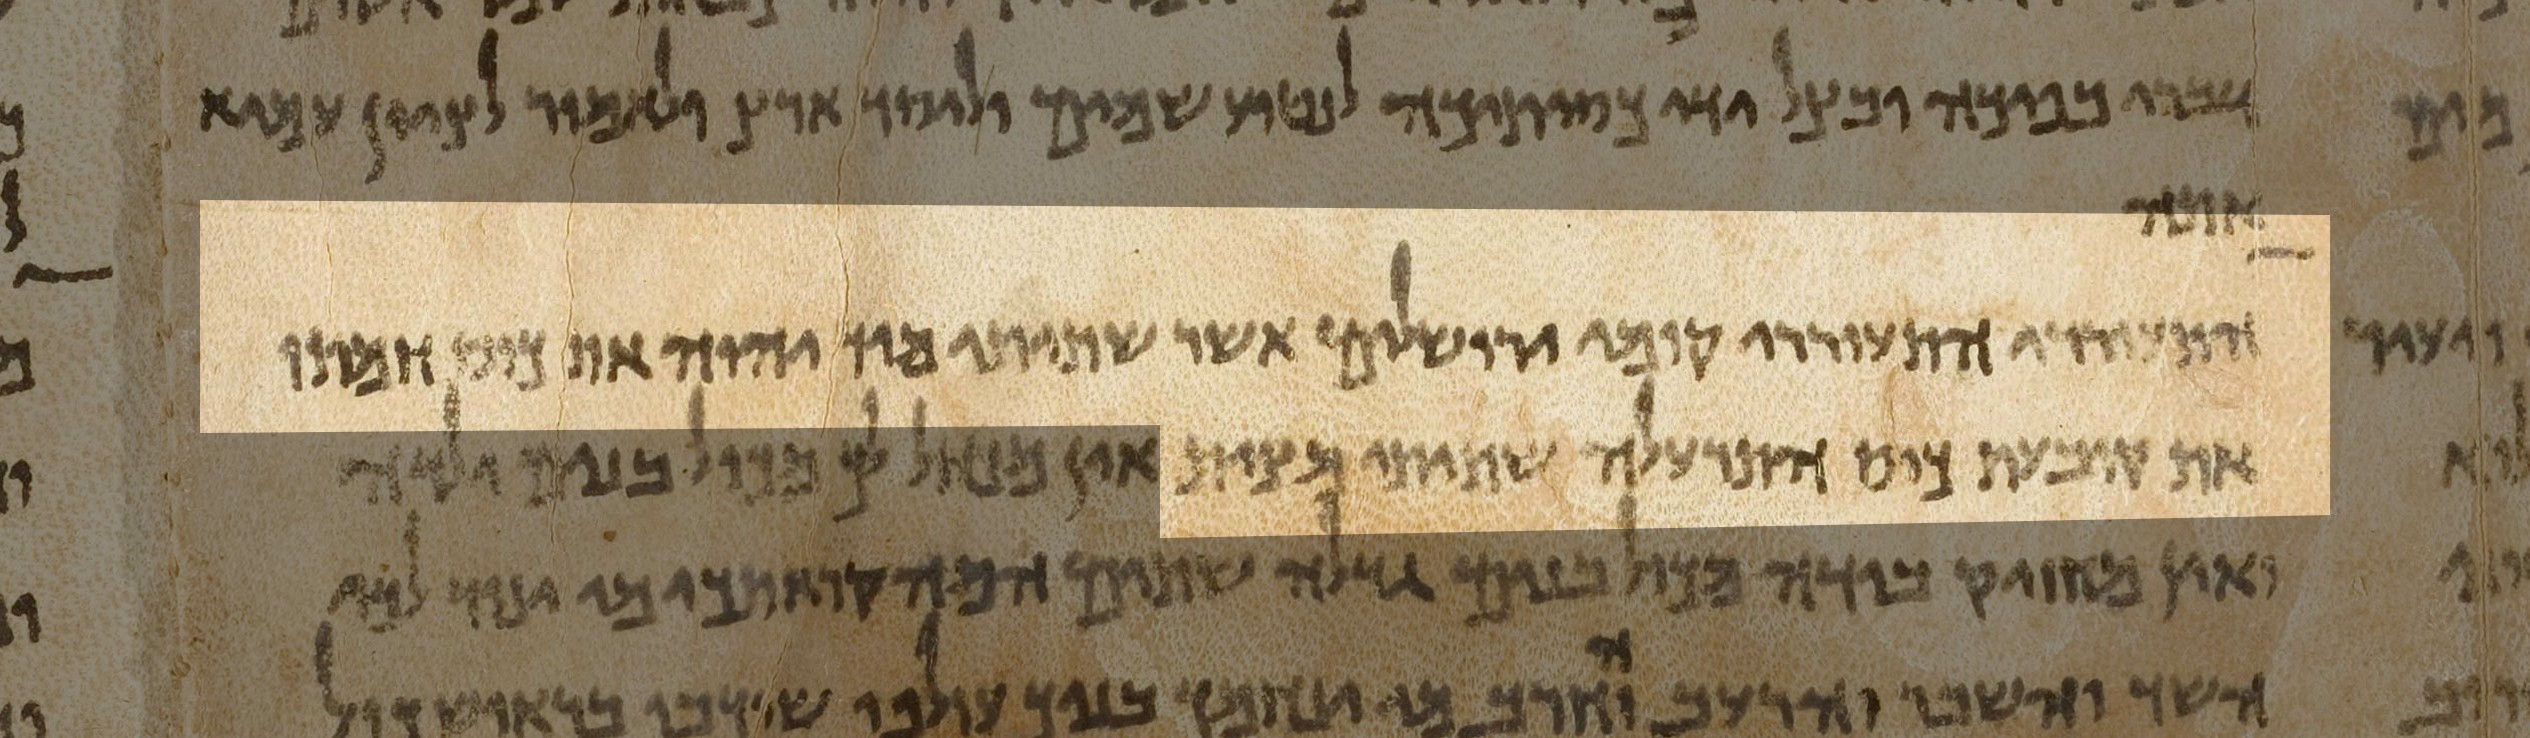 דברי בפיכה ובצל ידי כסיתיכה לנטוע שמים וליסוד ארץ ולאמור לציון עמיא
אתה
התעוררי התעוררי קומי ירושלים אשר שתיתי מיד יהוה את כוס חמתו
את קבעת כוס התרעלה שתיתי מצית אין מנהל לך מכול בנים ילדה
ואין מחזיק בידה מכול בנים גדלה שתים המה קראתיכי מי ינוד לכי
השד והשבר והרעב והחרב מי ינחמך בניך עולפו שכבו בראוש כול